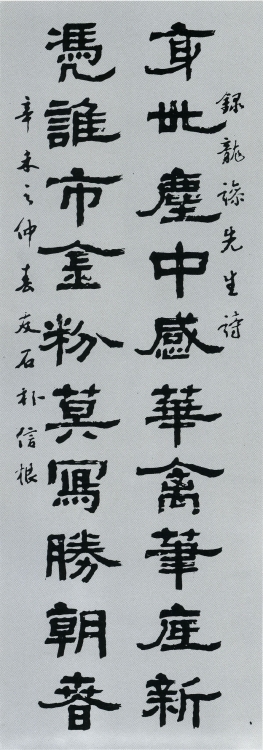 錄龍先生詩
身世塵中感華禽筆底新
凴誰市金粉莫寫勝朝春
辛未之仲春友石朴信根